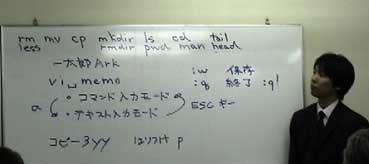 rm mv cp mkdir ls cd tail
less rmdir pwd man head
一太郎Ark
vi␣memo :w 保存
:q 終了 :q!
a ・コマンド入力モード ESCキー
・テキスト入力モード
コピー3yy はりつけ p